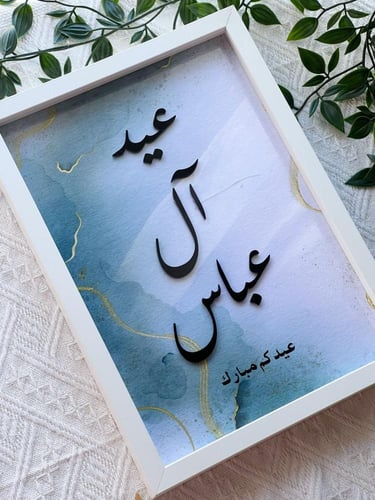 عيد
آل
عباس
عيدكم مبارك